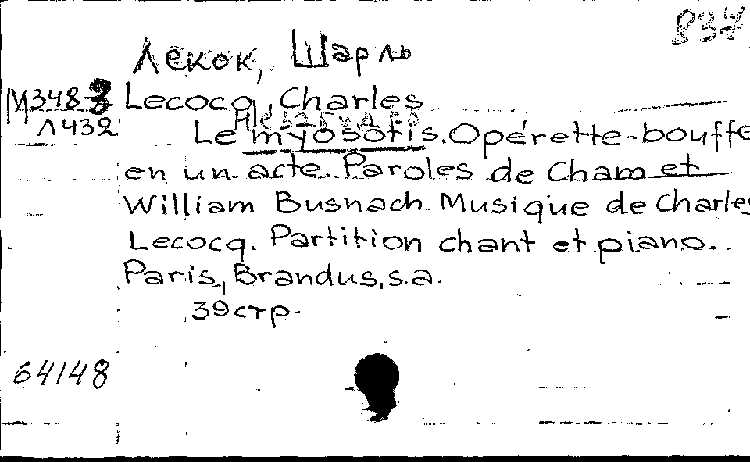 837
Лекок, Шарль
М348-3 Lecocq, Charles
Л432 Le myosotis. Opérette-bouffe
en un acte. Paroles de Cham et
William Busnach. Musique de Charles
Lecocq. Partition chant et piano.
Paris, Brandus, s.a.
39 стр.
64148